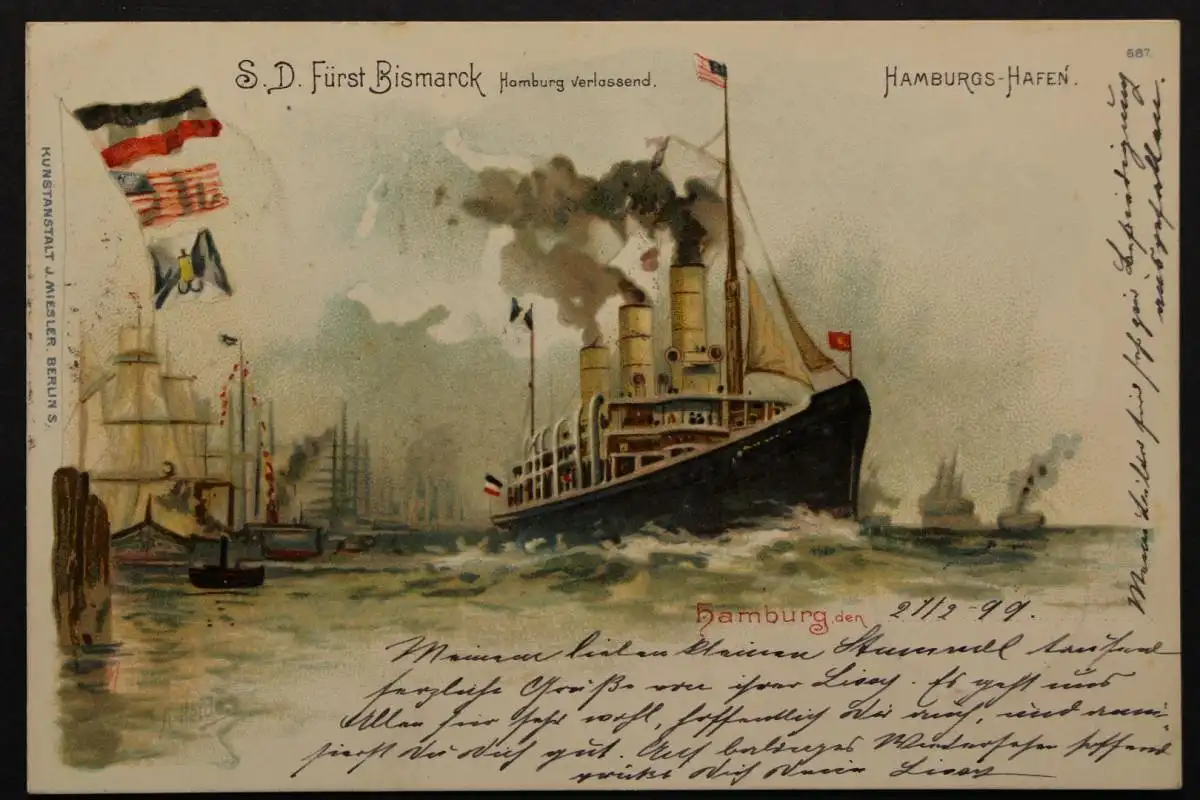 S. D. Fürst Bismarck Hamburg verlassend.
HAMBURGS-HAFEN.
587.
KUNSTANSTALT J. MIESLER. BERLIN S.
Hamburg, den 27/2-99.
Meinem lieben kleinen tausend
herzliche Grüße von ihrer Lissy. Es geht uns
Allen hier sehr wohl, hoffentlich Dir auch, und amü-
sierst Du Dich gut. Auf baldiges Wiedersehen hoffend
grüßt Dich Deine Lissy
Meine Bilder sind sehr zur Befriedigung
ausgefallen.